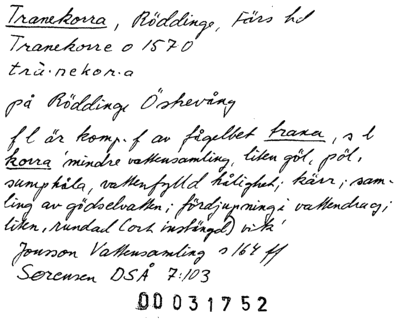 Tranekorra, Röddinge, Färs hd
Tranekorre o 1570
trà·nekor·a
på Röddinge Östrevång
f l är komp. f av fågelbet trana, s l
korra 'mindre vattensamling, liten göl, pöl,
sumphåla, vattenfylld hålighet; kärr; sam-
ling av gödselvatten; fördjupning i vattendrag;
liten, rundad (och instängd) vik'
Jonsson Vattensamling s 164 ff
Sørensen DSÅ 7:103
00031752